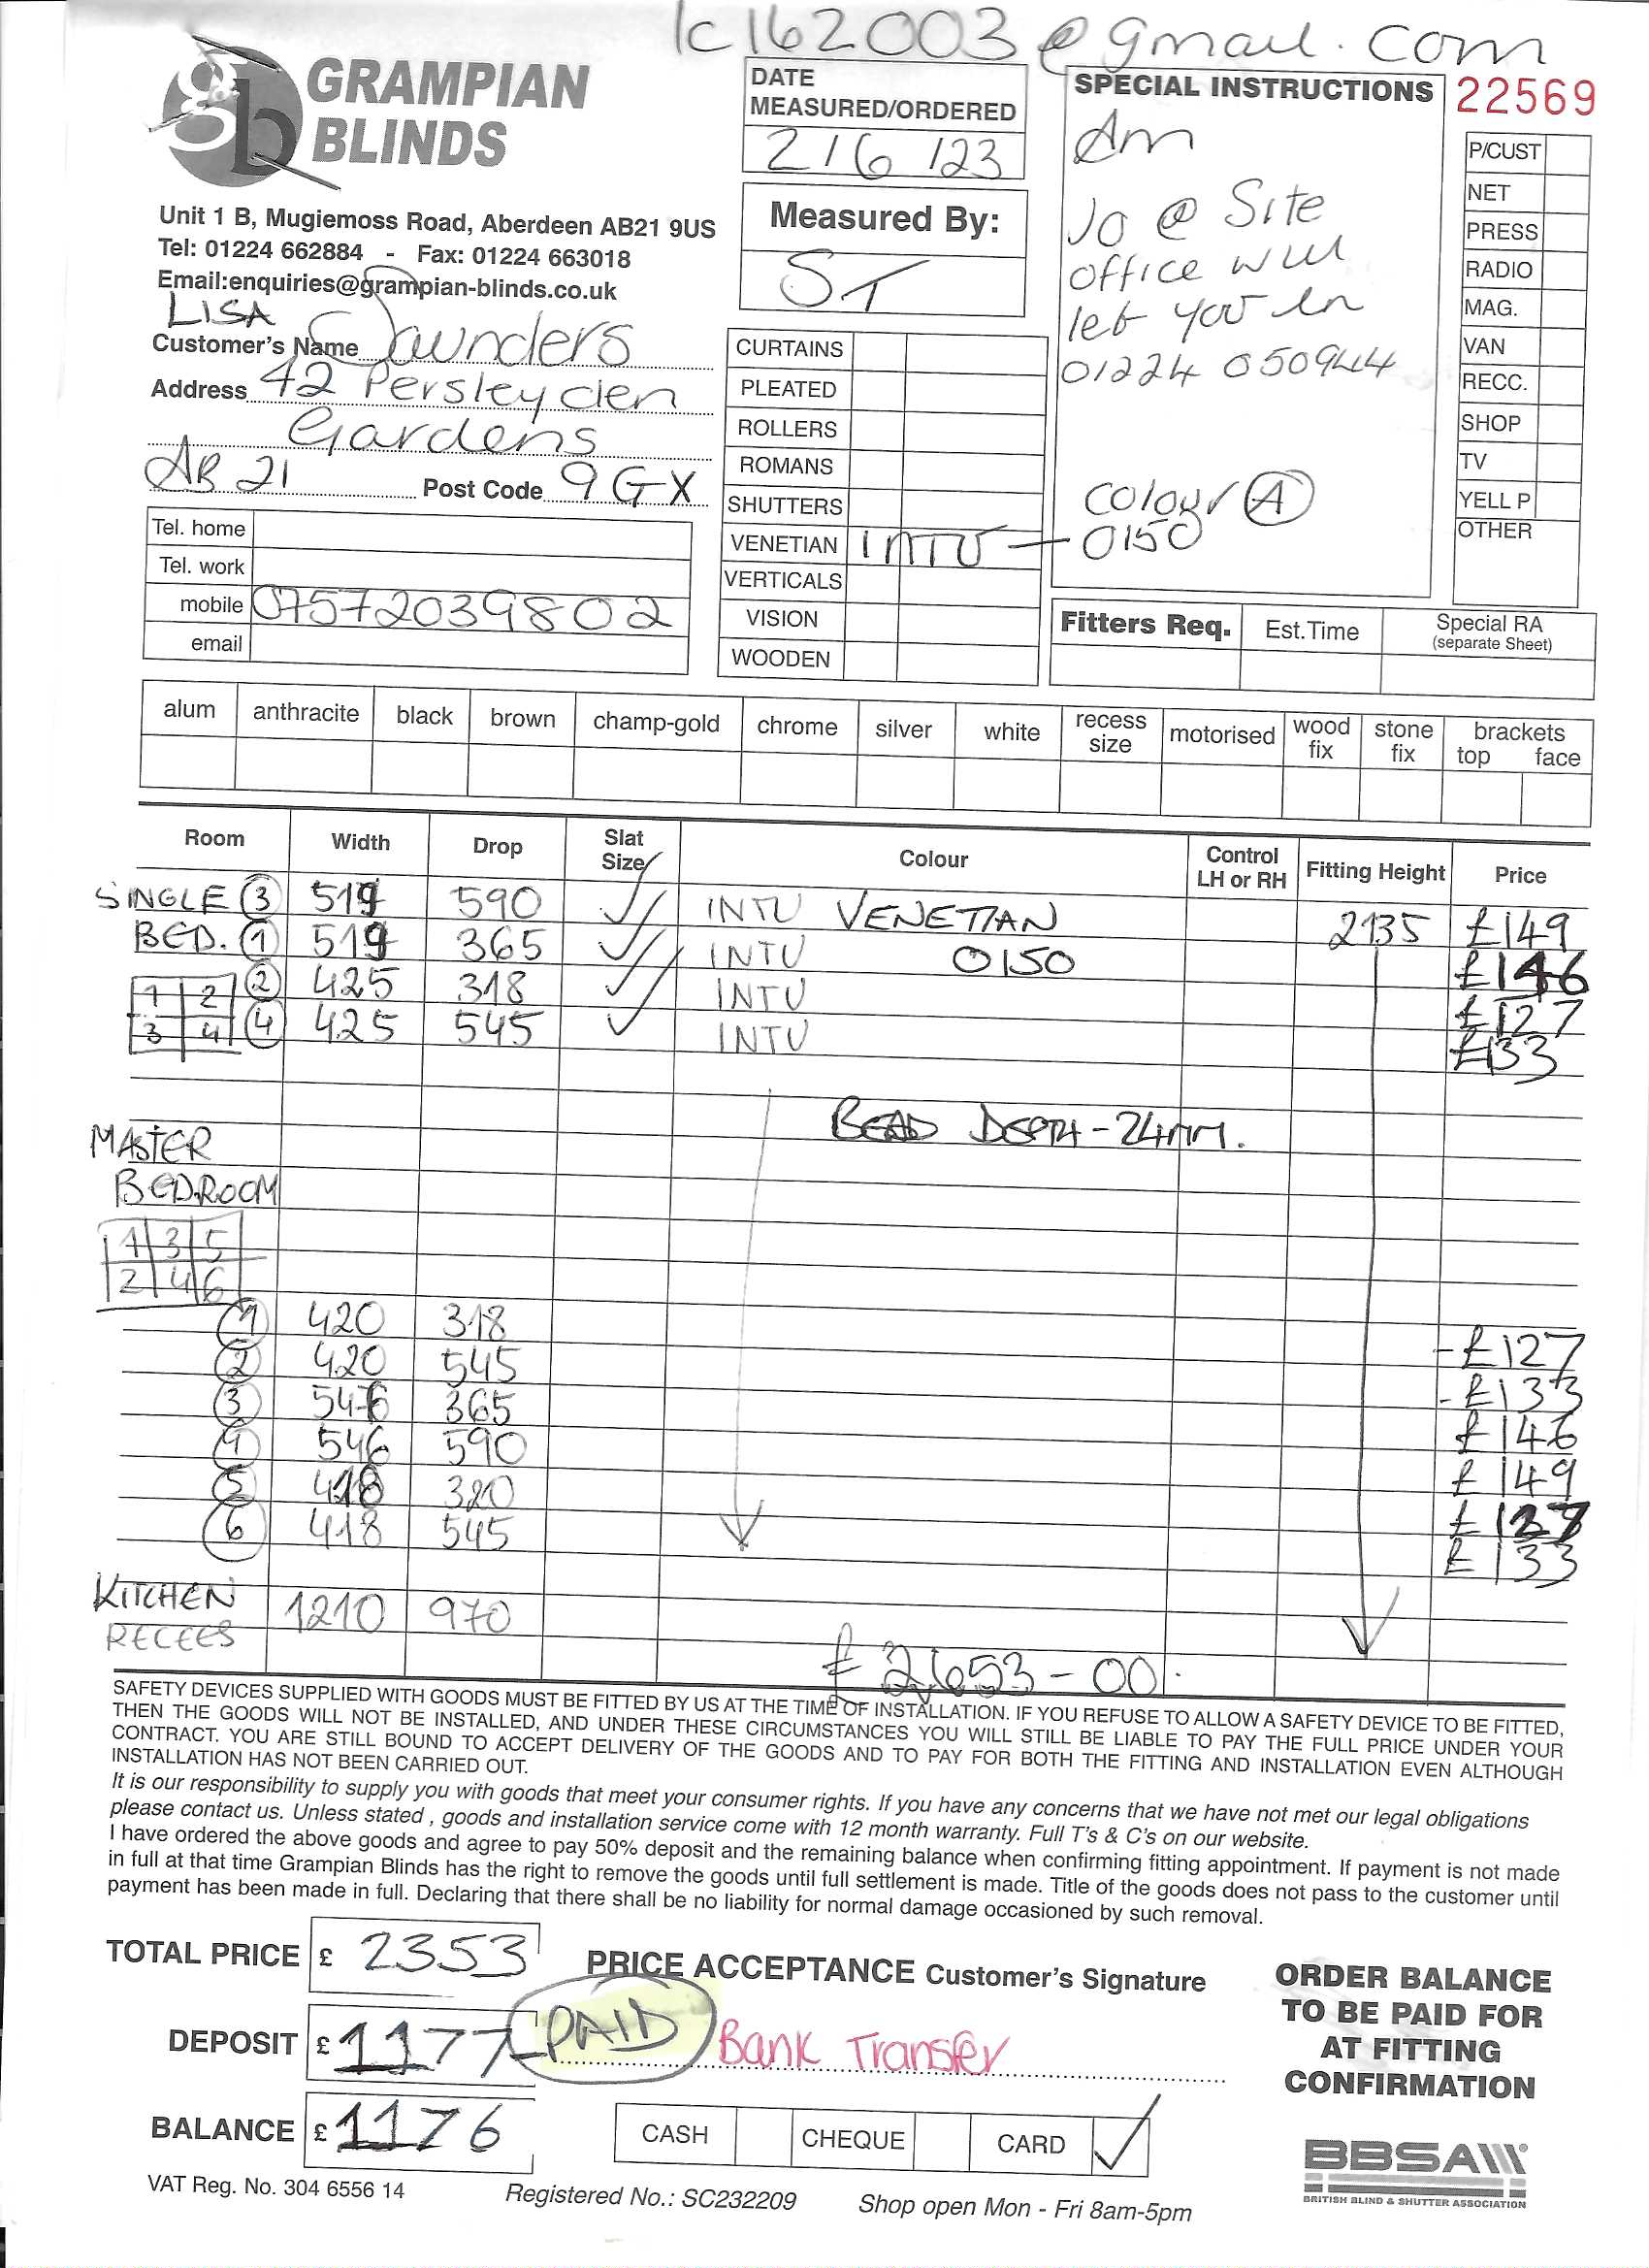 lc162003@gmail.com
GRAMPIAN
BLINDS
Unit 1 B, Mugiemoss Road, Aberdeen AB21 9US
Tel: 01224 662884 - Fax: 01224 663018
Email:enquiries@grampian-blinds.co.uk
LISA
Customer's Name Saunders
Address 42 Persley den
Gardens
AB 21 Post Code 9GX
Tel. home
Tel. work
mobile 07572039802
email
DATE
MEASURED/ORDERED
2/6/23
Measured By:
ST
CURTAINS
PLEATED
ROLLERS
ROMANS
SHUTTERS
VENETIAN INTU -
VERTICALS
VISION
WOODEN
SPECIAL INSTRUCTIONS
Am
Jo @ Site
office will
let you in
01224 050944
Colour A
0150
22569
P/CUST
NET
PRESS
RADIO
MAG.
VAN
RECC.
SHOP
TV
YELL P
OTHER
Fitters Req. Est.Time Special RA
(separate Sheet)
alum anthracite black brown champ-gold chrome silver white recess size motorised wood fix stone fix brackets top face
Room Width Drop Slat Size Colour Control LH or RH Fitting Height Price
SINGLE 3 519 590 INTU VENETIAN 2135 £149
BED. 1 519 365 INTU 0150 £146
2 425 318 INTU £127
4 425 545 INTU £133
1 2
3 4
BEAD DEPTH - 24MM.
MASTER
BEDROOM
1 3 5
2 4 6
1 420 318 - £127
2 420 545 - £133
3 546 365 £146
4 546 590 £149
5 418 320 £127
6 418 545 £133
KITCHEN 1210 970
RECEES
£2,653-00.
SAFETY DEVICES SUPPLIED WITH GOODS MUST BE FITTED BY US AT THE TIME OF INSTALLATION. IF YOU REFUSE TO ALLOW A SAFETY DEVICE TO BE FITTED,
THEN THE GOODS WILL NOT BE INSTALLED, AND UNDER THESE CIRCUMSTANCES YOU WILL STILL BE LIABLE TO PAY THE FULL PRICE UNDER YOUR
CONTRACT. YOU ARE STILL BOUND TO ACCEPT DELIVERY OF THE GOODS AND TO PAY FOR BOTH THE FITTING AND INSTALLATION EVEN ALTHOUGH
INSTALLATION HAS NOT BEEN CARRIED OUT.
It is our responsibility to supply you with goods that meet your consumer rights. If you have any concerns that we have not met our legal obligations
please contact us. Unless stated , goods and installation service come with 12 month warranty. Full T's & C's on our website.
I have ordered the above goods and agree to pay 50% deposit and the remaining balance when confirming fitting appointment. If payment is not made
in full at that time Grampian Blinds has the right to remove the goods until full settlement is made. Title of the goods does not pass to the customer until
payment has been made in full. Declaring that there shall be no liability for normal damage occasioned by such removal.
TOTAL PRICE £ 2353 PRICE ACCEPTANCE Customer's Signature
DEPOSIT £ 1177 PAID Bank Transfer
BALANCE £ 1176 CASH CHEQUE CARD
ORDER BALANCE
TO BE PAID FOR
AT FITTING
CONFIRMATION
BBSA
BRITISH BLIND & SHUTTER ASSOCIATION
VAT Reg. No. 304 6556 14 Registered No.: SC232209 Shop open Mon - Fri 8am-5pm